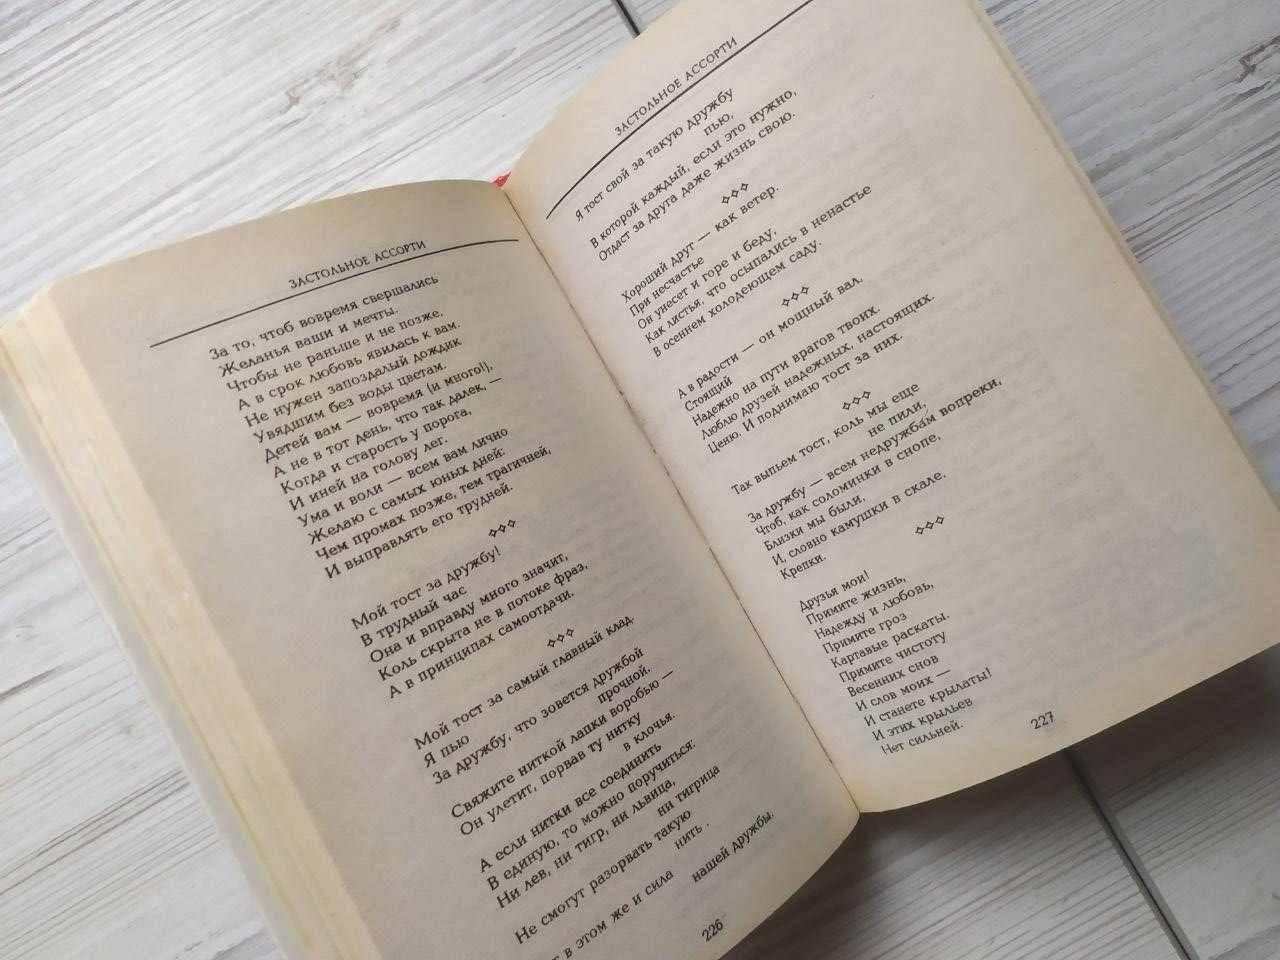 ЗАСТОЛЬНОЕ АССОРТИ
За то, чтоб вовремя свершались
Желанья ваши и мечты.
Чтобы не раньше и не позже,
А в срок любовь явилась к вам.
Не нужен запоздалый дождик
Увядшим без воды цветам.
Детей вам — вовремя (и много!),
А не в тот день, что так далек, —
Когда и старость у порога,
И иней на голову лег.
Ума и воли — всем вам лично
Желаю с самых юных дней:
Чем промах позже, тем трагичней,
И выправлять его трудней.
Мой тост за дружбу!
В трудный час
Она и вправду много значит,
Коль скрыта не в потоке фраз,
А в принципах самоотдачи.
Мой тост за самый главный клад.
Я пью
За дружбу, что зовется дружбой
прочной.
Свяжите ниткой лапки воробью —
Он улетит, порвав ту нитку
в клочья.
А если нитки все соединить
В единую, то можно поручиться:
Ни лев, ни тигр, ни львица,
ни тигрица
Не смогут разорвать такую
нить.
в этом же и сила
нашей дружбы.
226
ЗАСТОЛЬНОЕ АССОРТИ
Я тост свой за такую дружбу
пью,
В которой каждый, если это нужно,
Отдаст за друга даже жизнь свою.
Хороший друг — как ветер.
При несчастье
Он унесет и горе и беду,
Как листья, что осыпались в ненастье
В осеннем холодеющем саду.
А в радости — он мощный вал,
Стоящий
Надежно на пути врагов твоих.
Люблю друзей надежных, настоящих.
Ценю. И поднимаю тост за них.
Так выпьем тост, коль мы еще
не пили,
За дружбу — всем недружба́м вопреки,
Чтоб, как соломинки в снопе,
Близки мы были,
И, словно камушки в скале,
Крепки.
Друзья мои!
Примите жизнь,
Надежду и любовь,
Примите гроз
Картавые раскаты.
Примите чистоту
Весенних снов
И слов моих —
И станете крылаты!
И этих крыльев
Нет сильней.
227